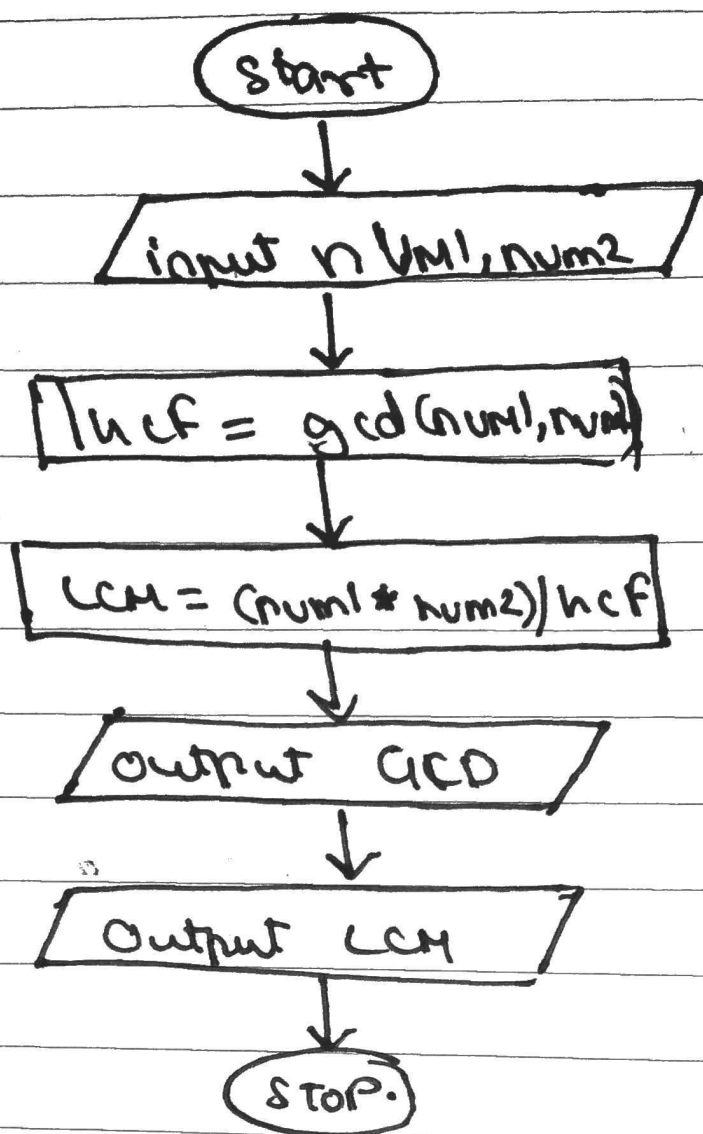 Start
input nUM1, num2
hcf = gcd(num1, num2)
LCM = (num1 * num2)/hcf
output GCD
Output LCM
STOP.